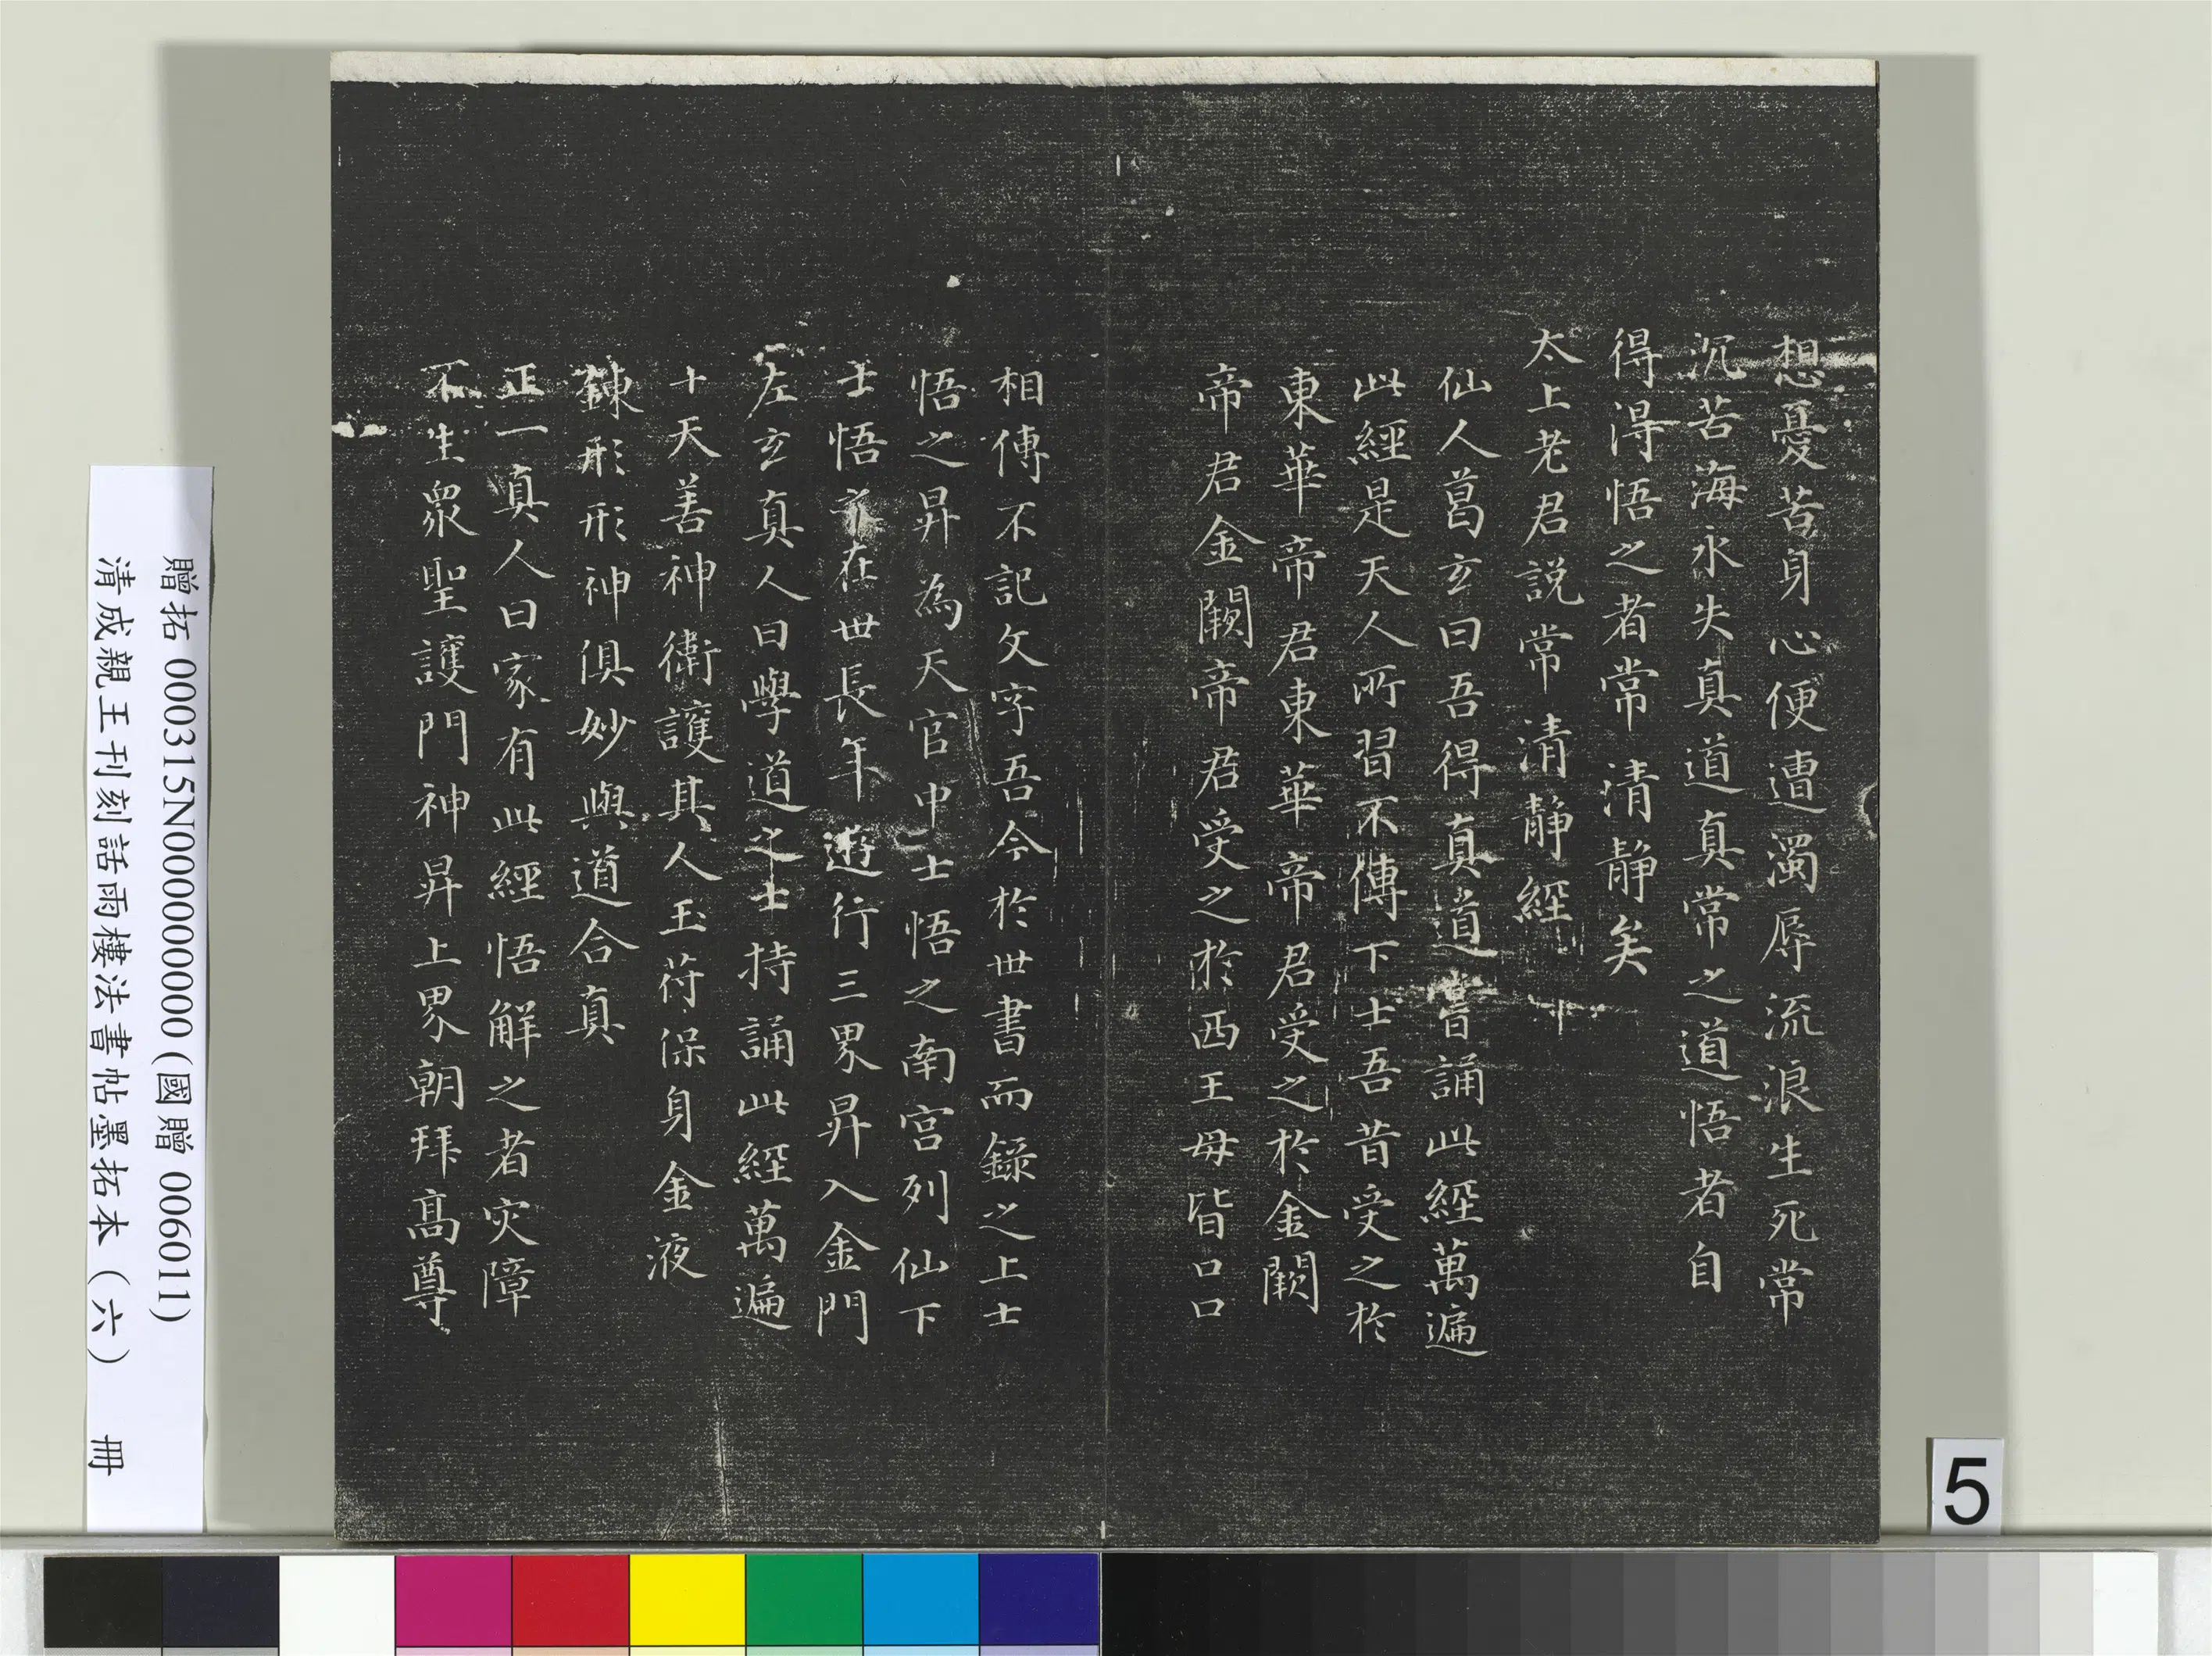 想憂苦身心便遭濁辱流浪生死常
沉苦海永失真道真常之道悟者自
得得悟之者常清靜矣
太上老君説常清靜經
仙人葛玄曰吾得真道嘗誦此經萬遍
此經是天人所習不傳下士吾昔受之於
東華帝君東華帝君受之於金闕
帝君金闕帝君受之於西王母皆口口
相傳不記文字吾今於世書而錄之上士
悟之昇為天官中士悟之南宫列仙下
士悟之在世長年遊行三界昇入金門
左玄真人曰學道之士持誦此經萬遍
十天善神衛護其人玉符保身金液
鍊形形神俱妙與道合真
正一真人曰家有此經悟解之者灾障
不生衆聖護門神昇上界朝拜高尊
贈拓 000315N000000000 (國贈 006011)
清成親王刊刻詒雨樓法書帖墨拓本（六） 冊
5